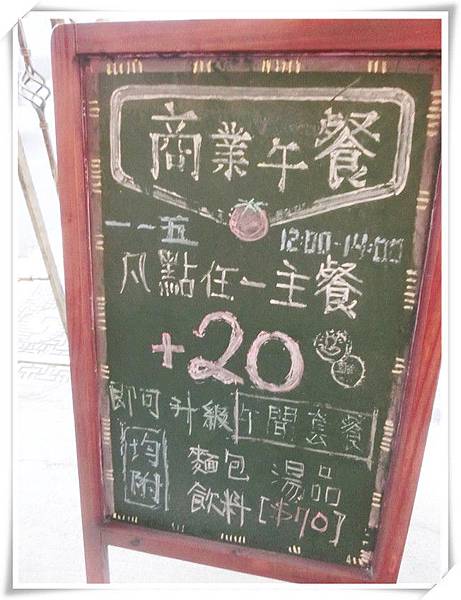 商業午餐
一~五 12:00-14:00
凡點任一主餐
+20
即可升級午間套餐
均附 麵包 湯品
飲料[$70]